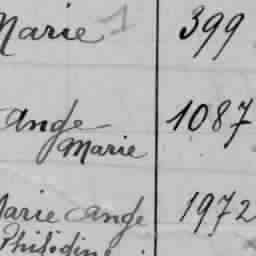 Marie 1 399
Ange 1087
Marie
Marie Ange 1972